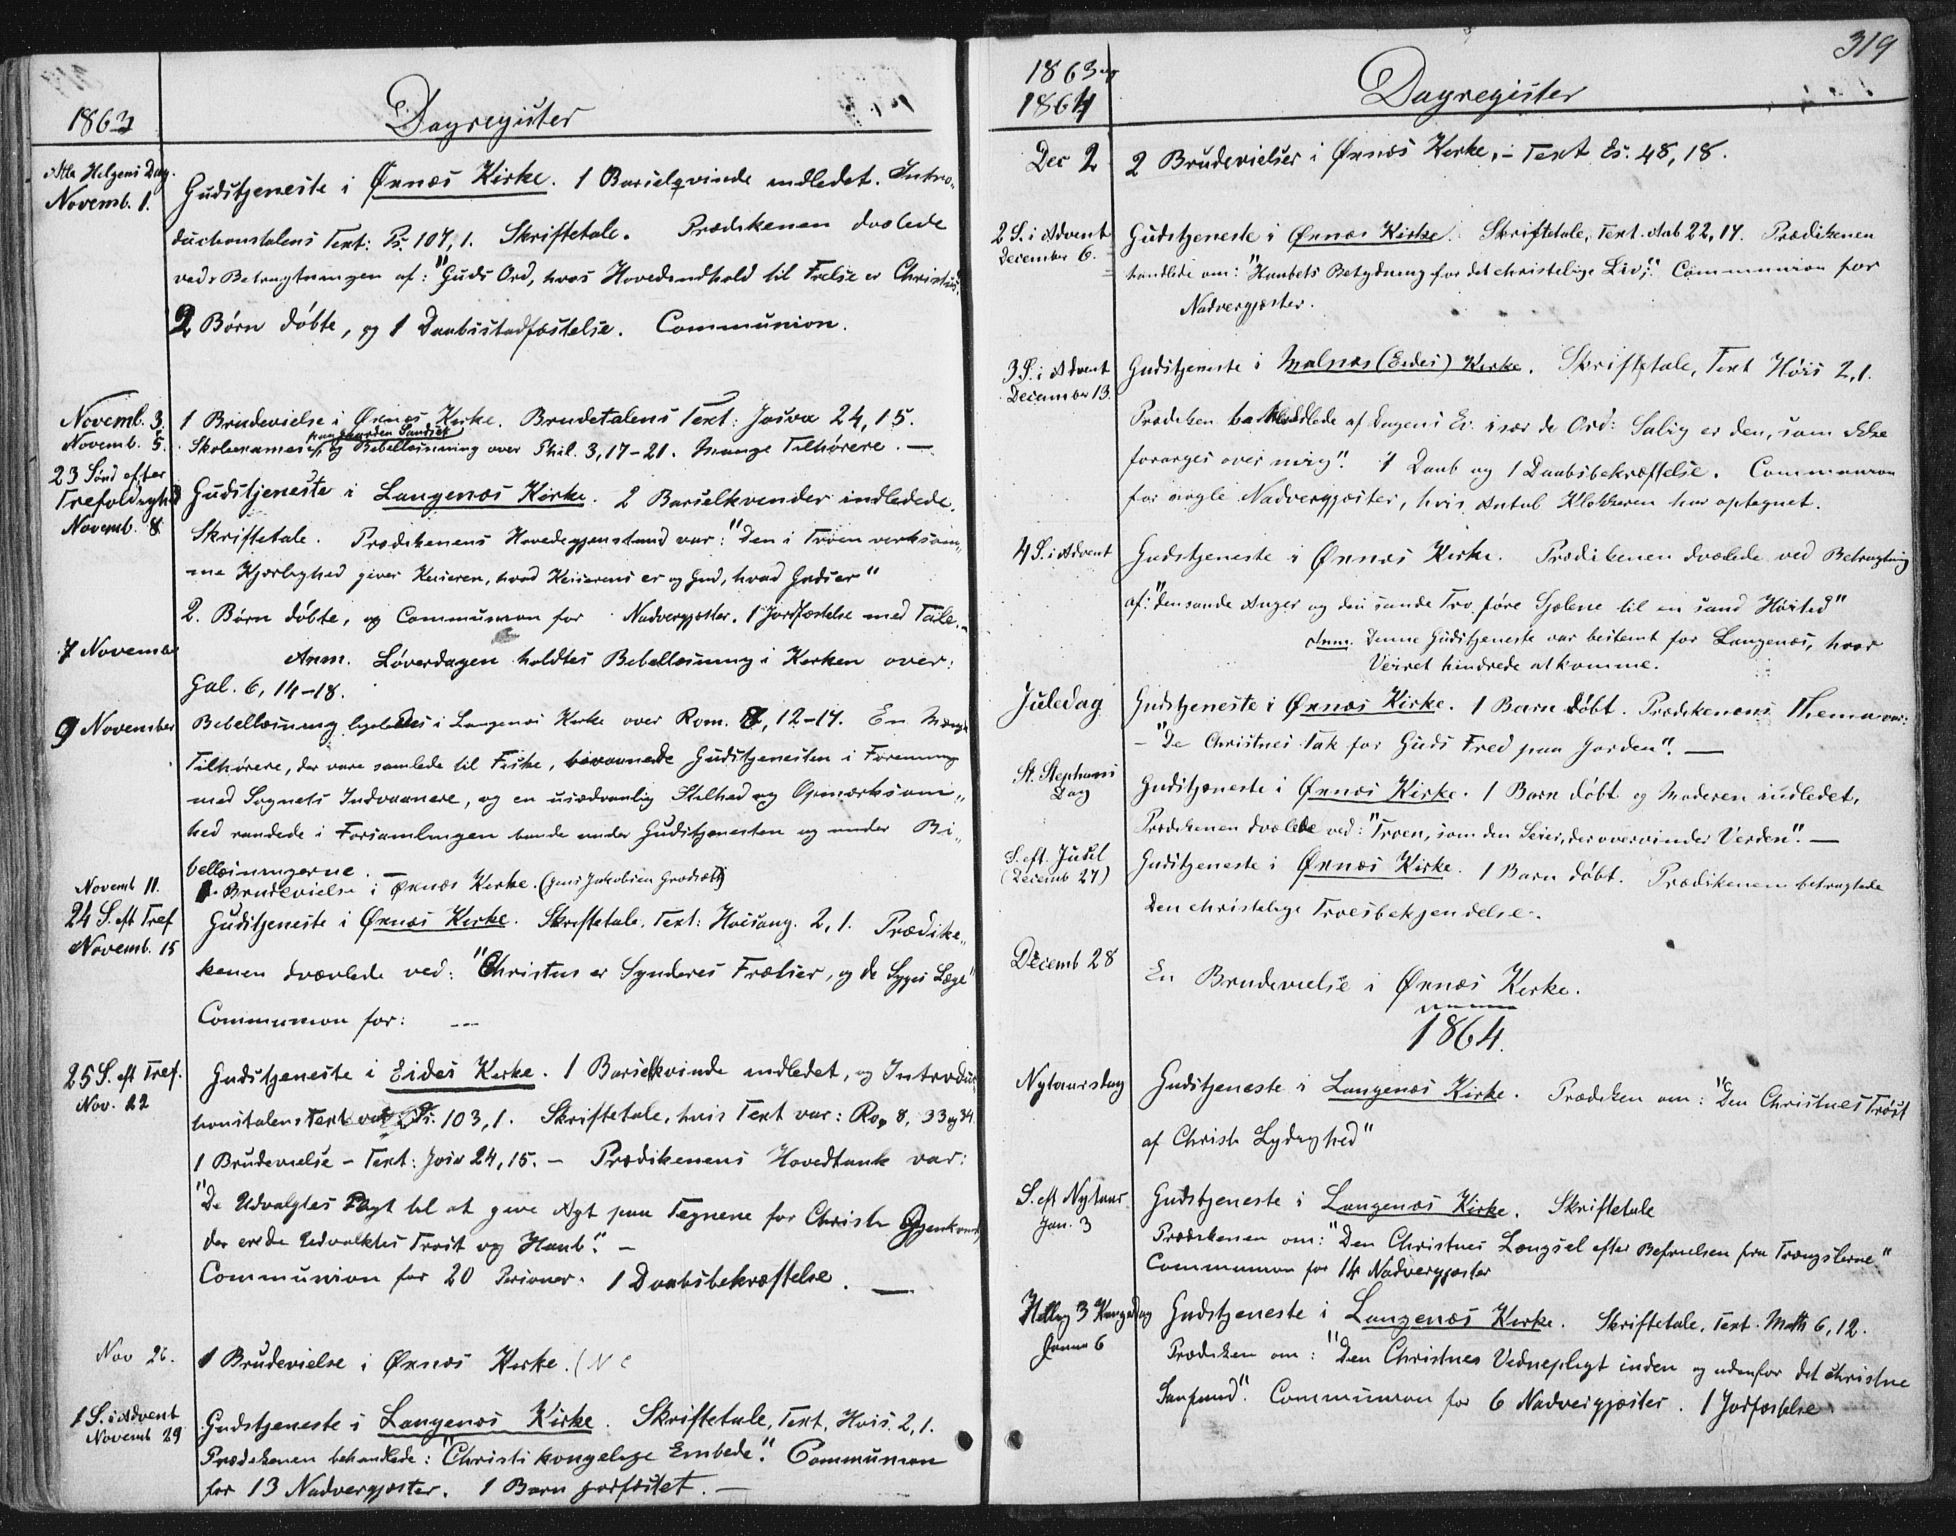 1863
Dagregister
Alle Helgens Dag.
Novemb. 1.
Gudstjeneste i Øxnæs Kirke. 1 Barselqvinde indledet. Intro-
ductionstalens Text: Ps. 107, 1. Skriftetale. Prædikenen dvælede
ved Betragtningen af: "Guds Ord, hvis Hovedindhold til Frelse er Christus.
2 Børn døbte, og 1 Daabsstadfæstelse. Communion.
Novemb. 3.
1 Brudevielse i Øxnæs Kirke. Brudetalens Text: Josva 24, 15.
Novemb. 5.
Skoleexamen paa Gaarden Sandset og Bibellæsning over Phil. 3, 17-21. Mange Tilhørere. —
23 Sønd efter
Trefoldighed
Novemb. 8
Gudstjeneste i Langenæs Kirke. 2 Barselkvinder indledede.
Skriftetale. Prædikenens Hovedgjenstand var: "Den i Troen verksom-
me Kjærlighed giver Keiseren, hvad Keiserens er og Gud, hvad Guds er"
2. Børn døbte, og Communion for Nadvergjæster. 1 Jordfæstelse med Tale. -
7 November
Anm. Løverdagen holdtes Bibellæsning i Kirken over:
Gal. 6, 14-18.
9 November
Bibellæsning ligeledes i Langenæs Kirke over Rom. 8, 12-17. En Mængde
Tilhørere, der vare samlede til Fiske, bivaanede Gudstjenesten i Forening
med Sognets Indvaanere, og en usædvanlig Stilhed og Opmærksom-
hed raadede i Forsamlingen baade under Gudstjenesten og under Bi-
bellæsningerne. —
Novemb 11.
1 Brudevielse i Øxnæs Kirke. (Jens Jakobsen Grødsæt)
24 S. eft Tref
Novemb. 15
Gudstjeneste i Øxnæs Kirke. Skriftetale. Text: Høisang. 2, 1. Prædike-
kenen dvælede ved: "Christus er Synderes Frelser, og de Syges Læge"
Communion for: ---
25 S. eft Tref.
Nov. 22
Gudstjeneste i Eides Kirke. 1 Barselkvinde indledet, og Introduk-
tionstalens Text var Ps. 103, 1. Skriftetale, hvis Text var: Rom 8, 33 og 34.
1 Brudevielse - Text: Josv 24, 15. - Prædikenens Hovedtank var:
"De Udvalgtes Pligt til at give Agt paa Tegnene for Christi Gjenkomst,
der er de Udvalgtes Trøst og Haab". —
Communion for 20 Personer. 1 Daabsbekræftelse. —
Nov 26.
1 Brudevielse i Øxnæs Kirke. (N
1 S. i Advent
Novemb 29
Gudstjeneste i Langenæs Kirke. Skriftetale, Text, Høis. 2, 1.
Prædikenen behandlede: "Christi kongelige Embede". Communion
for 13 Nadvergjæster. 1 Barn jordfæstet. —
319
1863 og
1864
Dagregister
Dec 2
2 Brudevielser i Øxnæs Kirke, - Text Es. 48, 18.
2 S. i Advent
December 6.
Gudstjeneste i Øxnæs Kirke. Skriftetale, Text. Aab 22, 17. Prædikenen
handlede om: "Haabets Betydning for det christelige Liv". Communion for
Nadvergjæster.
3 S. i Advent
December 13.
Gudstjeneste i Malnæs (Eides) Kirke. Skriftetale, Text Høis 2, 1.
Prædiken behandlede af Dagens Ev. især de Ord: Salig er den, som ikke
forarges over mig". 1 Daab og 1 Daabsbekræftelse. Communion
for nogle Nadvergjæster, hvis Antal Klokkeren har optegnet.
4 S. i Advent
Gudstjeneste i Øxnæs Kirke. Prædikenen dvælede ved Betragtning
af: "den sande Anger og den sande Tro føre Sjælene til en sand Høitid"
Anm. Denne Gudstjeneste var bestemt for Langenæs, hvor
Veiret hindrede at komme.
Juledag
Gudstjeneste i Øxnæs Kirke. 1 Barn døbt. Prædikenens Thema var:
— "De Christnes Tak for Guds Fred paa Jorden". —
St. Stephans
Dag
Gudstjeneste i Øxnæs Kirke. 1 Barn døbt og Moderen indledet.
Prædikenen dvælede ved: "Troen, som den Seier, der overvinder Verden". —
S. eft. Juul
(Decemb 27)
Gudstjeneste i Øxnæs Kirke. 1 Barn døbt. Prædikenen betragtede
den christelige Troesbekjendelse.
Decemb 28
En Brudevielse i Øxnæs Kirke.
1864.
Nytaarsdag
Gudstjeneste i Langenæs Kirke. Prædiken om: "Den Christnes Trøst
af Christi Lydighed"
S. eft Nytaar
Jan. 3
Gudstjeneste i Langenæs Kirke. Skriftetale
Prædikenen om: "Den Christnes Længsel efter Befrielsen fra Trængslerne"
Communion for 14 Nadvergjæster
Hellig 3 Kongedag
Januar 6
Gudstjeneste i Langenæs Kirke. Skriftetale, Text. Math 6, 12.
Prædiken om: "Den Christnes Vidnepligt inden og udenfor det christne
Samfund". Communion for 6 Nadvergjæster. 1 Jordfæstelse